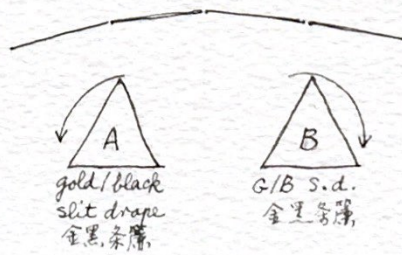 A
B
gold/black
slit drape
金黑条簾
G/B s.d.
金黑条簾